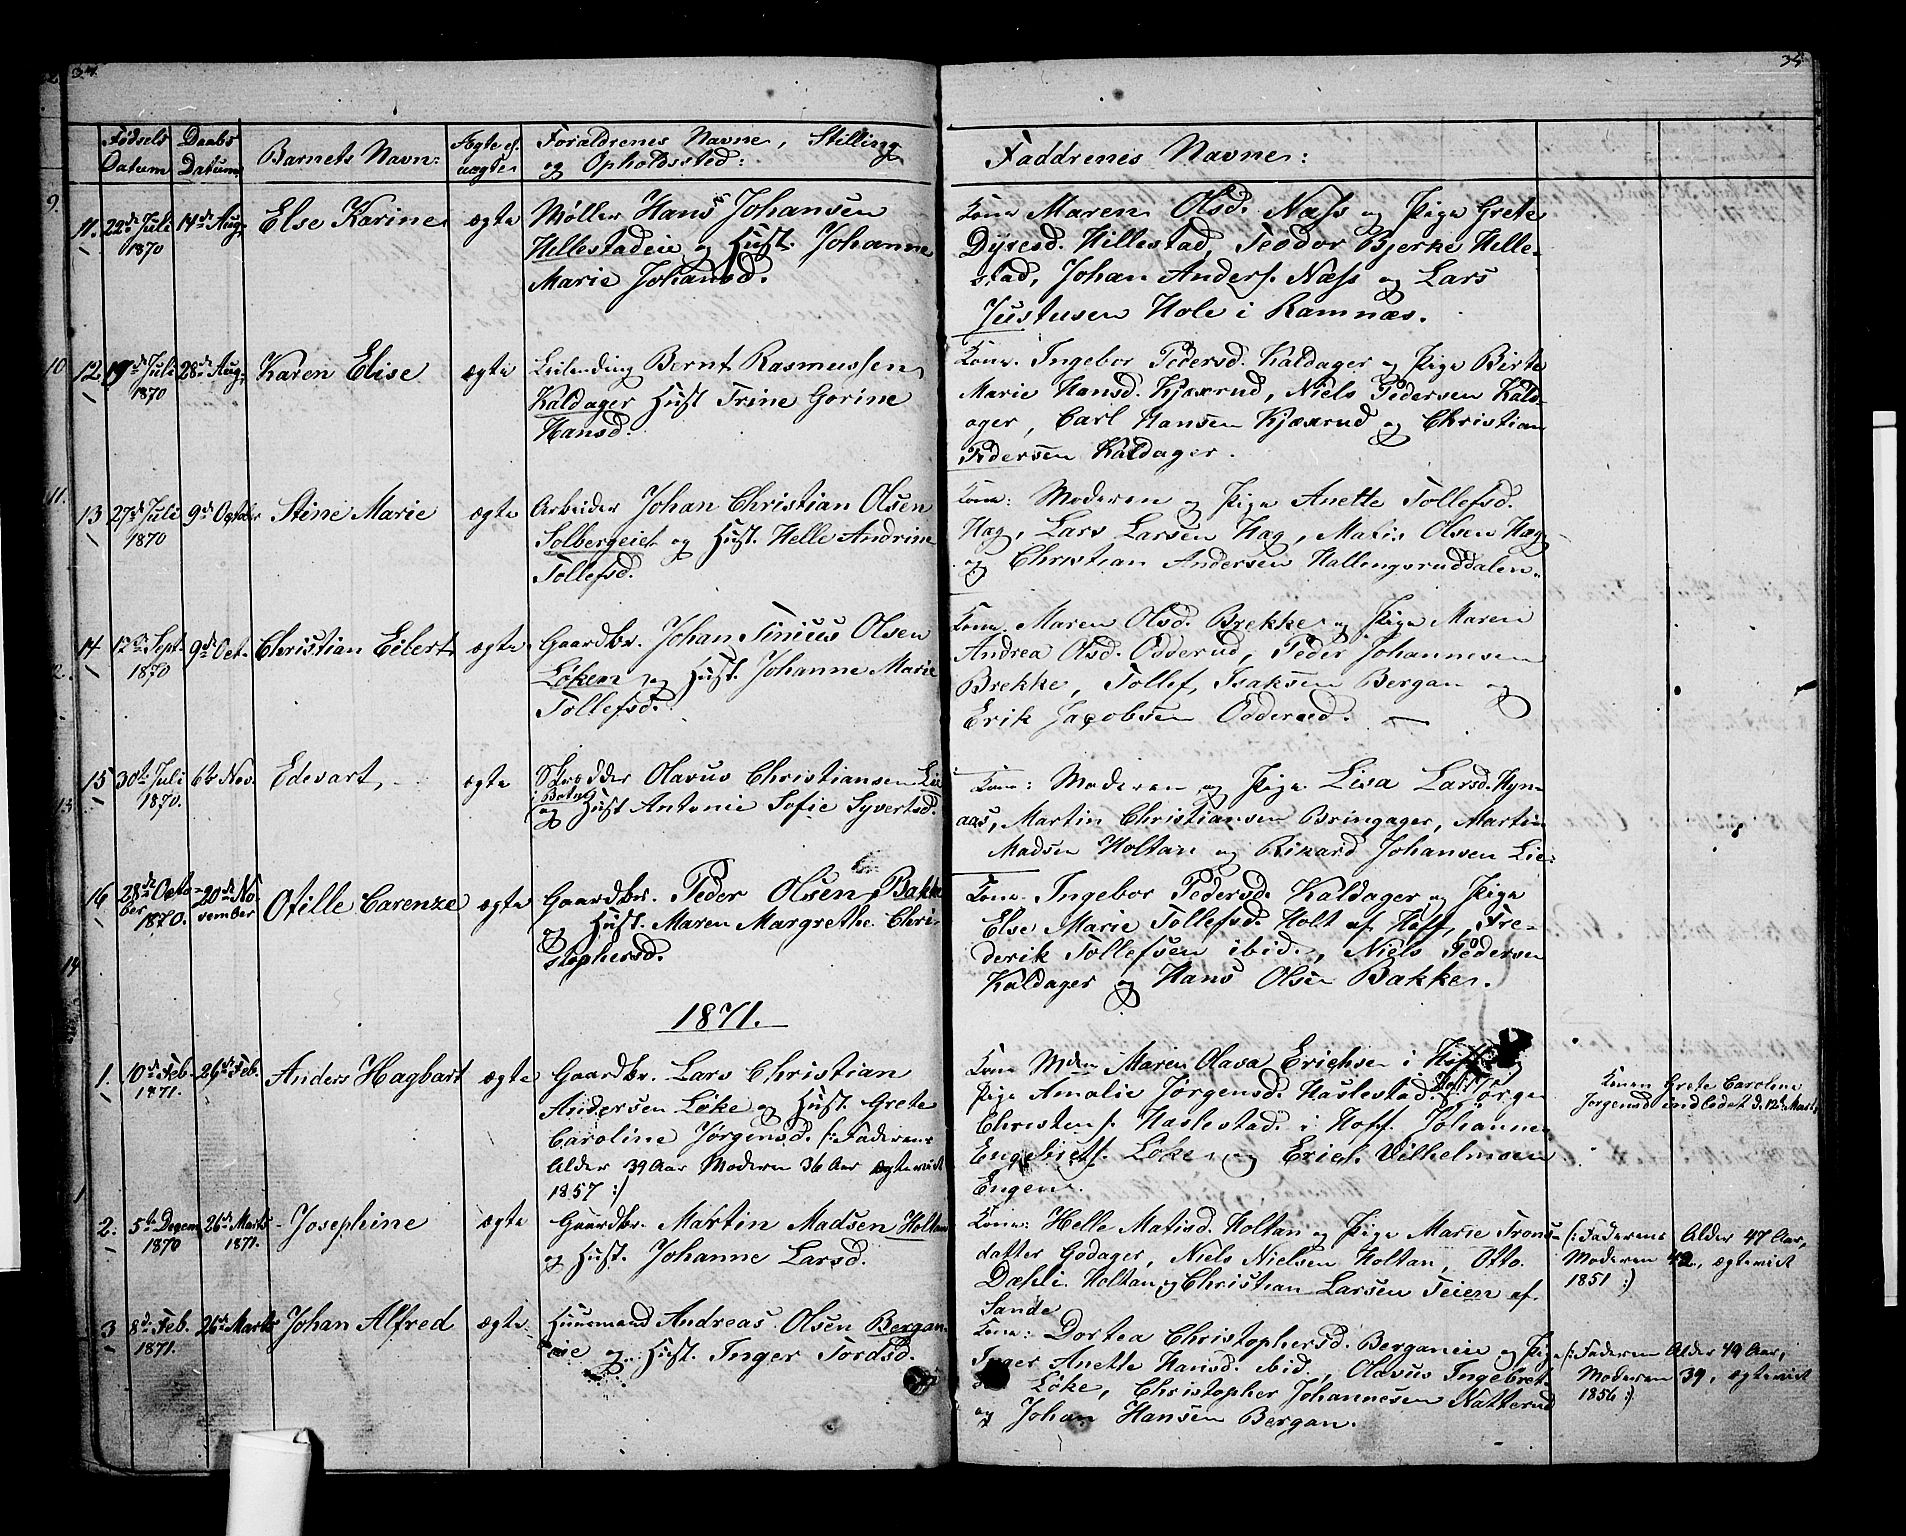 34.
34
Fødsels Datum
Daabs Datum
Barnets Navn:
Ægte el. uægte
Forældrenes Navne, Stilling
og Opholdssted:
Faddrenes Navne:
9.
11. 22de Juli 1870 14de Aug. Else Karine ægte
Møller Hans Johansen
Hillestadeie og Hust. Johanne
Marie Johansd.
Kone Maren Olsd. Næss og Pige Grete
Dyresd. Hillestad, Teodor Bjerke Hille-
stad, Johan Anders. Næss og Lars
Justusen Hole i Ramnæs.
10.
12. 19de Juli 1870 28de Aug. Karen Elise ægte
Leilending Bernt Rasmussen
Kaldager Hust Trine Gorine
Hansd.
Kone. Ingebor Pedersd. Kaldager og Pige Birte
Marie Hansd. Kjærrud, Niels Pedersen Kald-
ager, Carl Hansen Kjærrud og Christian
Pedersen Kaldager.
11.
13 27de Juli 1870 9de October Stine Marie ægte
Arbeider Johan Christian Olsen
Solbergeiet og Hust. Helle Andrine
Tollefsd.
Kone: Moderen og Pige Anette Tollefsd.
Hag, Lars Larsen Hag, Matis Olsen Hag
og Christian Andersen Hallengsruddalen.
14 12te Sept. 1870 9de Oct. Christian Eilert ægte
Gaardbr. Johan Sinius Olsen
Løken og Hust. Johanne Marie
Tollefsd.
Kone. Maren Olsd. Brekke og Pige Maren
Andrea Olsd. Odderud, Peder Johannesen
Brekke, Tollef Isaksen Bergan og
Erik Jacobsen Odderud.
15 30te Juli 1870. 6te Nov. Edevart, ægte
Skrædder Olavus Christiansen Lie
og Hust Antonie Sofie Syvertsd.
Kone: Moderen og Pige Lisa Larsd. Hyn-
aas, Martin Christiansen Bringager, Martin
Madsen Holtan og Rikard Johansen Lie.
16 28de October 1870. 20de November Otille Carenze ægte
Gaardbr. Peder Olsen Bakke
og Hust. Maren Margrethe Chri-
stophersd.
Kone. Ingebor Pedersd. Kaldager og Pige
Else Marie Tollefsd. Holt af Hoff, Fre-
derik Tollefsen ibid., Niels Pedersen
Kaldager og Hans Olsen Bakke.
14
1871.
1. 10de Feb. 1871. 26de Feb. Anders Hagbart ægte
Gaardbr. Lars Christian
Andersen Løke og Hust. Grete
Caroline Jørgensd. (: Faderens
Alder 39 Aar Moderen 36 Aar ægteviet
1857 :)
Kone Maren Olava Erichse i
Pige Amalie Jørgensd. Haslestad, Jørgen
Christens. Haslestad i Hoff. Johannes
Engebrets. Løke og Erich Vilhelmsen
Engen.
Konen Grete Caroline
Jørgensd indledet d. 12te Marts
2. 5te Decem 1870 26de Marts 1871. Josephine ægte
Gaardbr. Martin Madsen Holtan
og Hust. Johanne Larsd.
Kone: Helle Matisd. Holtan og Pige Marie Trons-
datter Godager, Niels Nielsen Holtan, Otto
Dæhli Holtan og Christian Larsen Teien af
Sande
(: Faderens Alder 47 Aar,
Moderen 42, ægteviet
1851 :)
3 8de Feb. 1871. 26de Marts Johan Alfred ægte
Huusmand Andreas Olsen Bergan-
eie og Hust. Inger Tordsd.
Kone: Dortea Christophersd. Berganeie og Pige
Inger Anette Hansd. ibid, Olavus Ingebret-
Løke, Christopher Johannesen Natterud
og Johan Hansen Bergan.
(: Faderen Alder 49 Aar,
Moderen 39, ægteviet
1856 :)